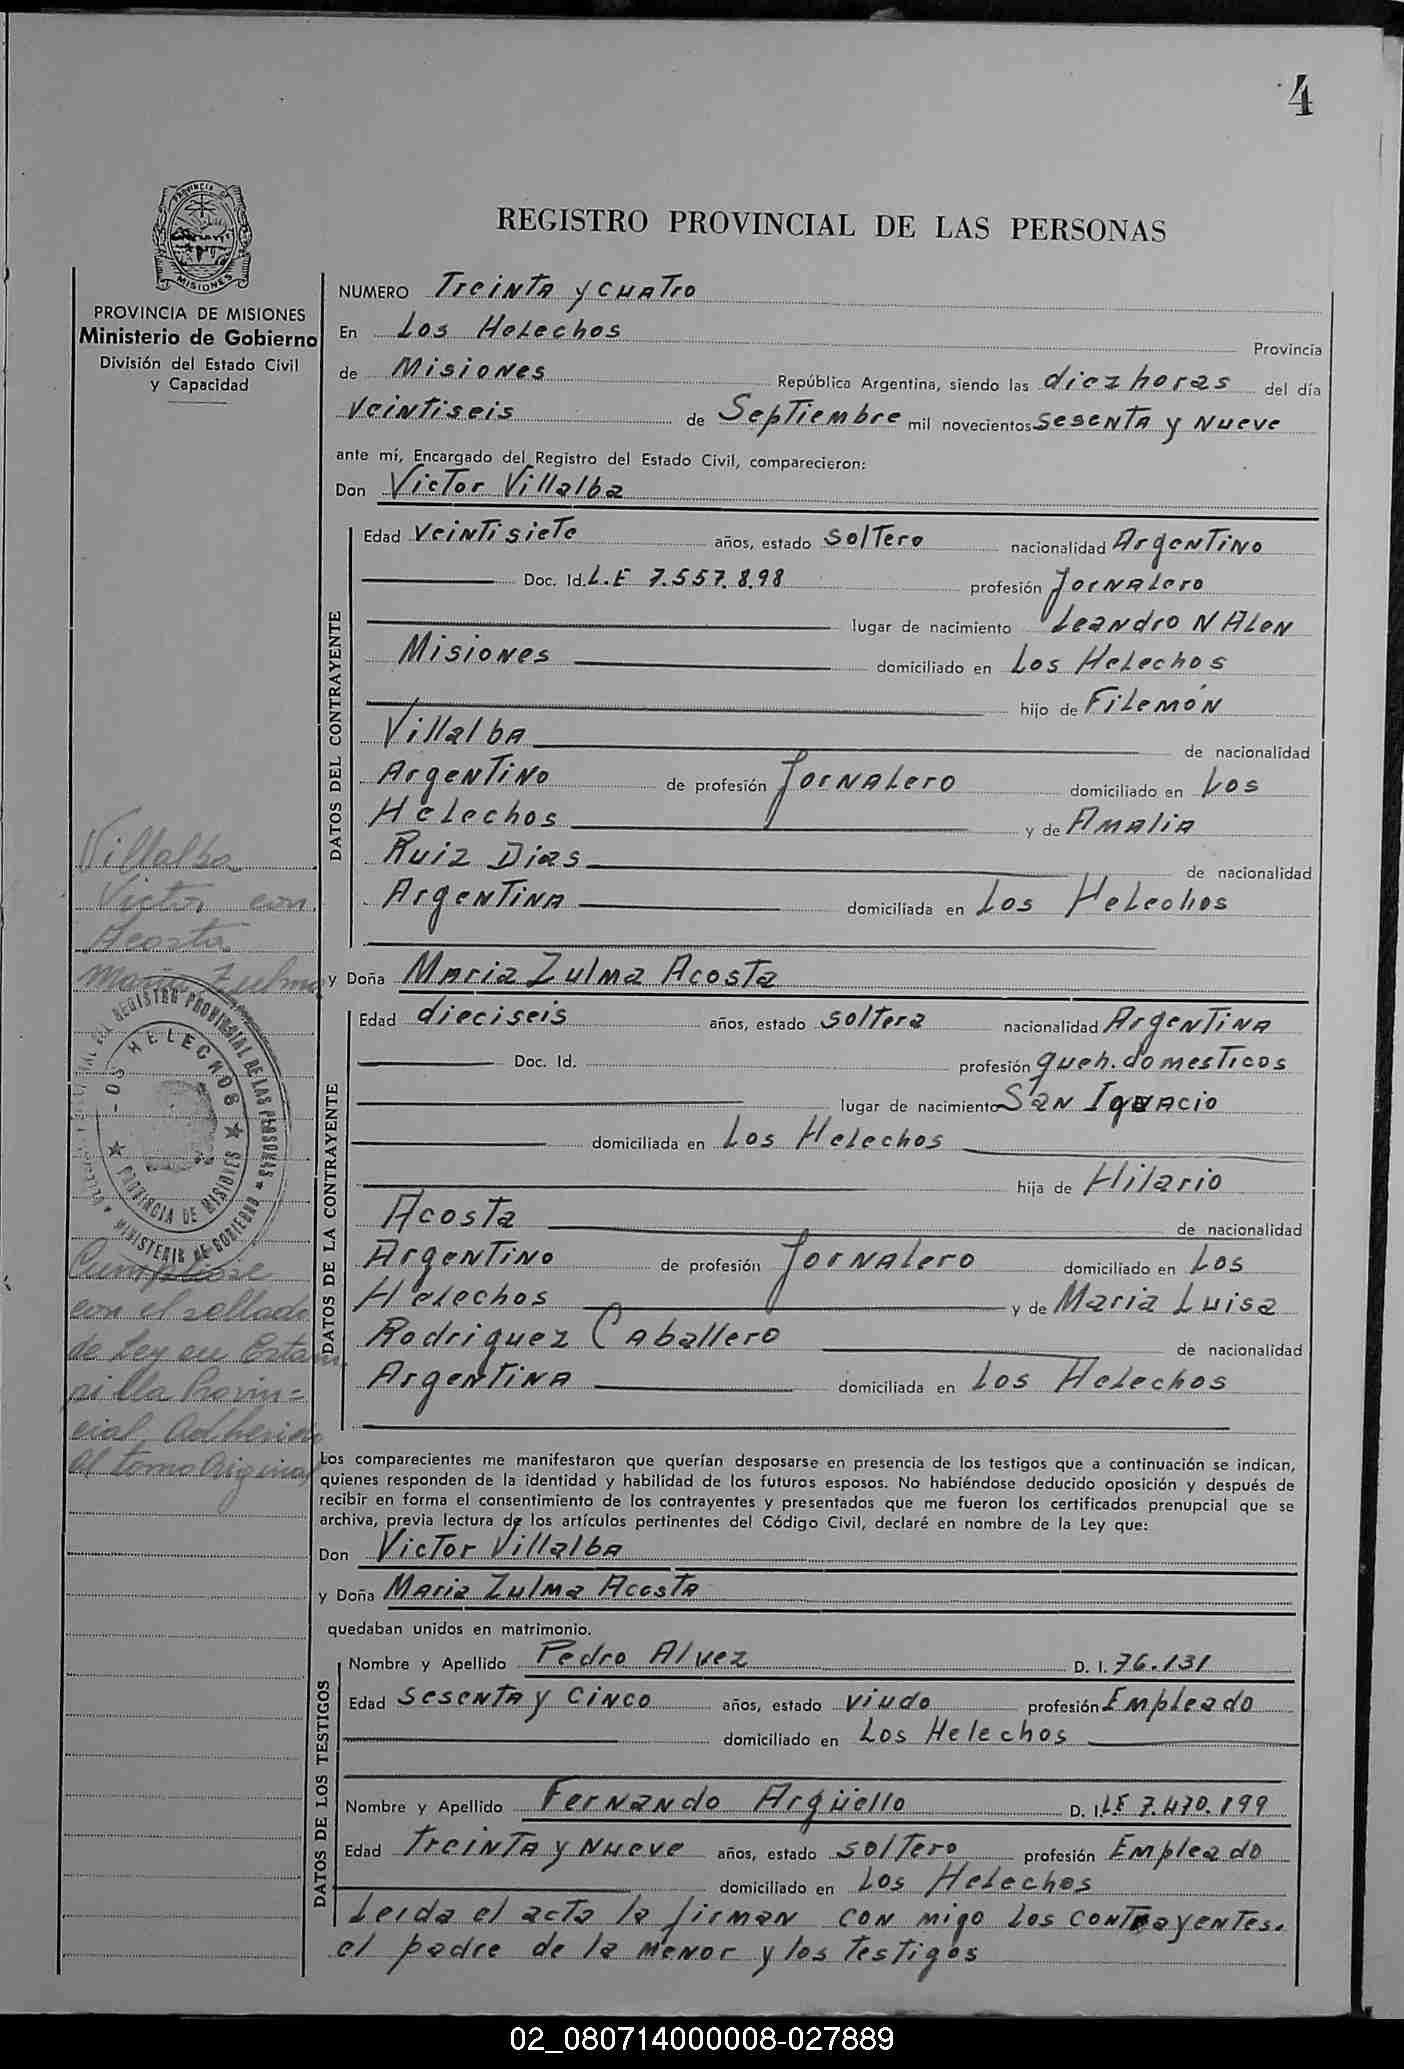 4
PROVINCIA DE
MISIONES
REGISTRO PROVINCIAL DE LAS PERSONAS
PROVINCIA DE MISIONES
Ministerio de Gobierno
División del Estado Civil
y Capacidad
NUMERO Treinta y cuatro
En Los Helechos Provincia
de Misiones República Argentina, siendo las diez horas del día
veintiseis de Septiembre mil novecientos sesenta y nueve
ante mí, Encargado del Registro del Estado Civil, comparecieron:
Don Victor Villalba
DATOS DEL CONTRAYENTE
Edad veintisiete años, estado soltero nacionalidad Argentino
Doc. Id. L.E 7.557.898 profesión Jornalero
lugar de nacimiento Leandro N Alen
Misiones domiciliado en Los Helechos
hijo de Filemón
Villalba de nacionalidad
Argentino de profesión Jornalero domiciliado en Los
Helechos y de Amalia
Ruiz Dias de nacionalidad
Argentina domiciliada en Los Helechos
Villalba
Victor con
Acosta
Maria Zulma
y Doña Maria Zulma Acosta
DATOS DE LA CONTRAYENTE
Edad dieciseis años, estado soltera nacionalidad Argentina
Doc. Id. profesión queh. domesticos
lugar de nacimiento San Ignacio
domiciliada en Los Helechos
hija de Hilario
Acosta de nacionalidad
Argentino de profesión Jornalero domiciliado en Los
Helechos y de Maria Luisa
Rodriguez Caballero de nacionalidad
Argentina domiciliada en Los Helechos
REGISTRO PROVINCIAL DE LAS PERSONAS
LOS HELECHOS
PROVINCIA DE MISIONES
MINISTERIO DE GOBIERNO
Cumpliose
con el sellado
de Ley en Estam
pilla Provin=
cial, Adherida
al tomo Original
Los comparecientes me manifestaron que querían desposarse en presencia de los testigos que a continuación se indican,
quienes responden de la identidad y habilidad de los futuros esposos. No habiéndose deducido oposición y después de
recibir en forma el consentimiento de los contrayentes y presentados que me fueron los certificados prenupcial que se
archiva, previa lectura de los artículos pertinentes del Código Civil, declaré en nombre de la Ley que:
Don Victor Villalba
y Doña Maria Zulma Acosta
quedaban unidos en matrimonio.
DATOS DE LOS TESTIGOS
Nombre y Apellido Pedro Alvez D. I. 76.131
Edad sesenta y cinco años, estado viudo profesión Empleado
domiciliado en Los Helechos
Nombre y Apellido Fernando Argüello D. I. LE 7.470.199
Edad treinta y nueve años, estado soltero profesión Empleado
domiciliado en Los Helechos
Leida el acta la firman con migo los contrayentes.
el padre de la menor y los testigos
02_080714000008-027889